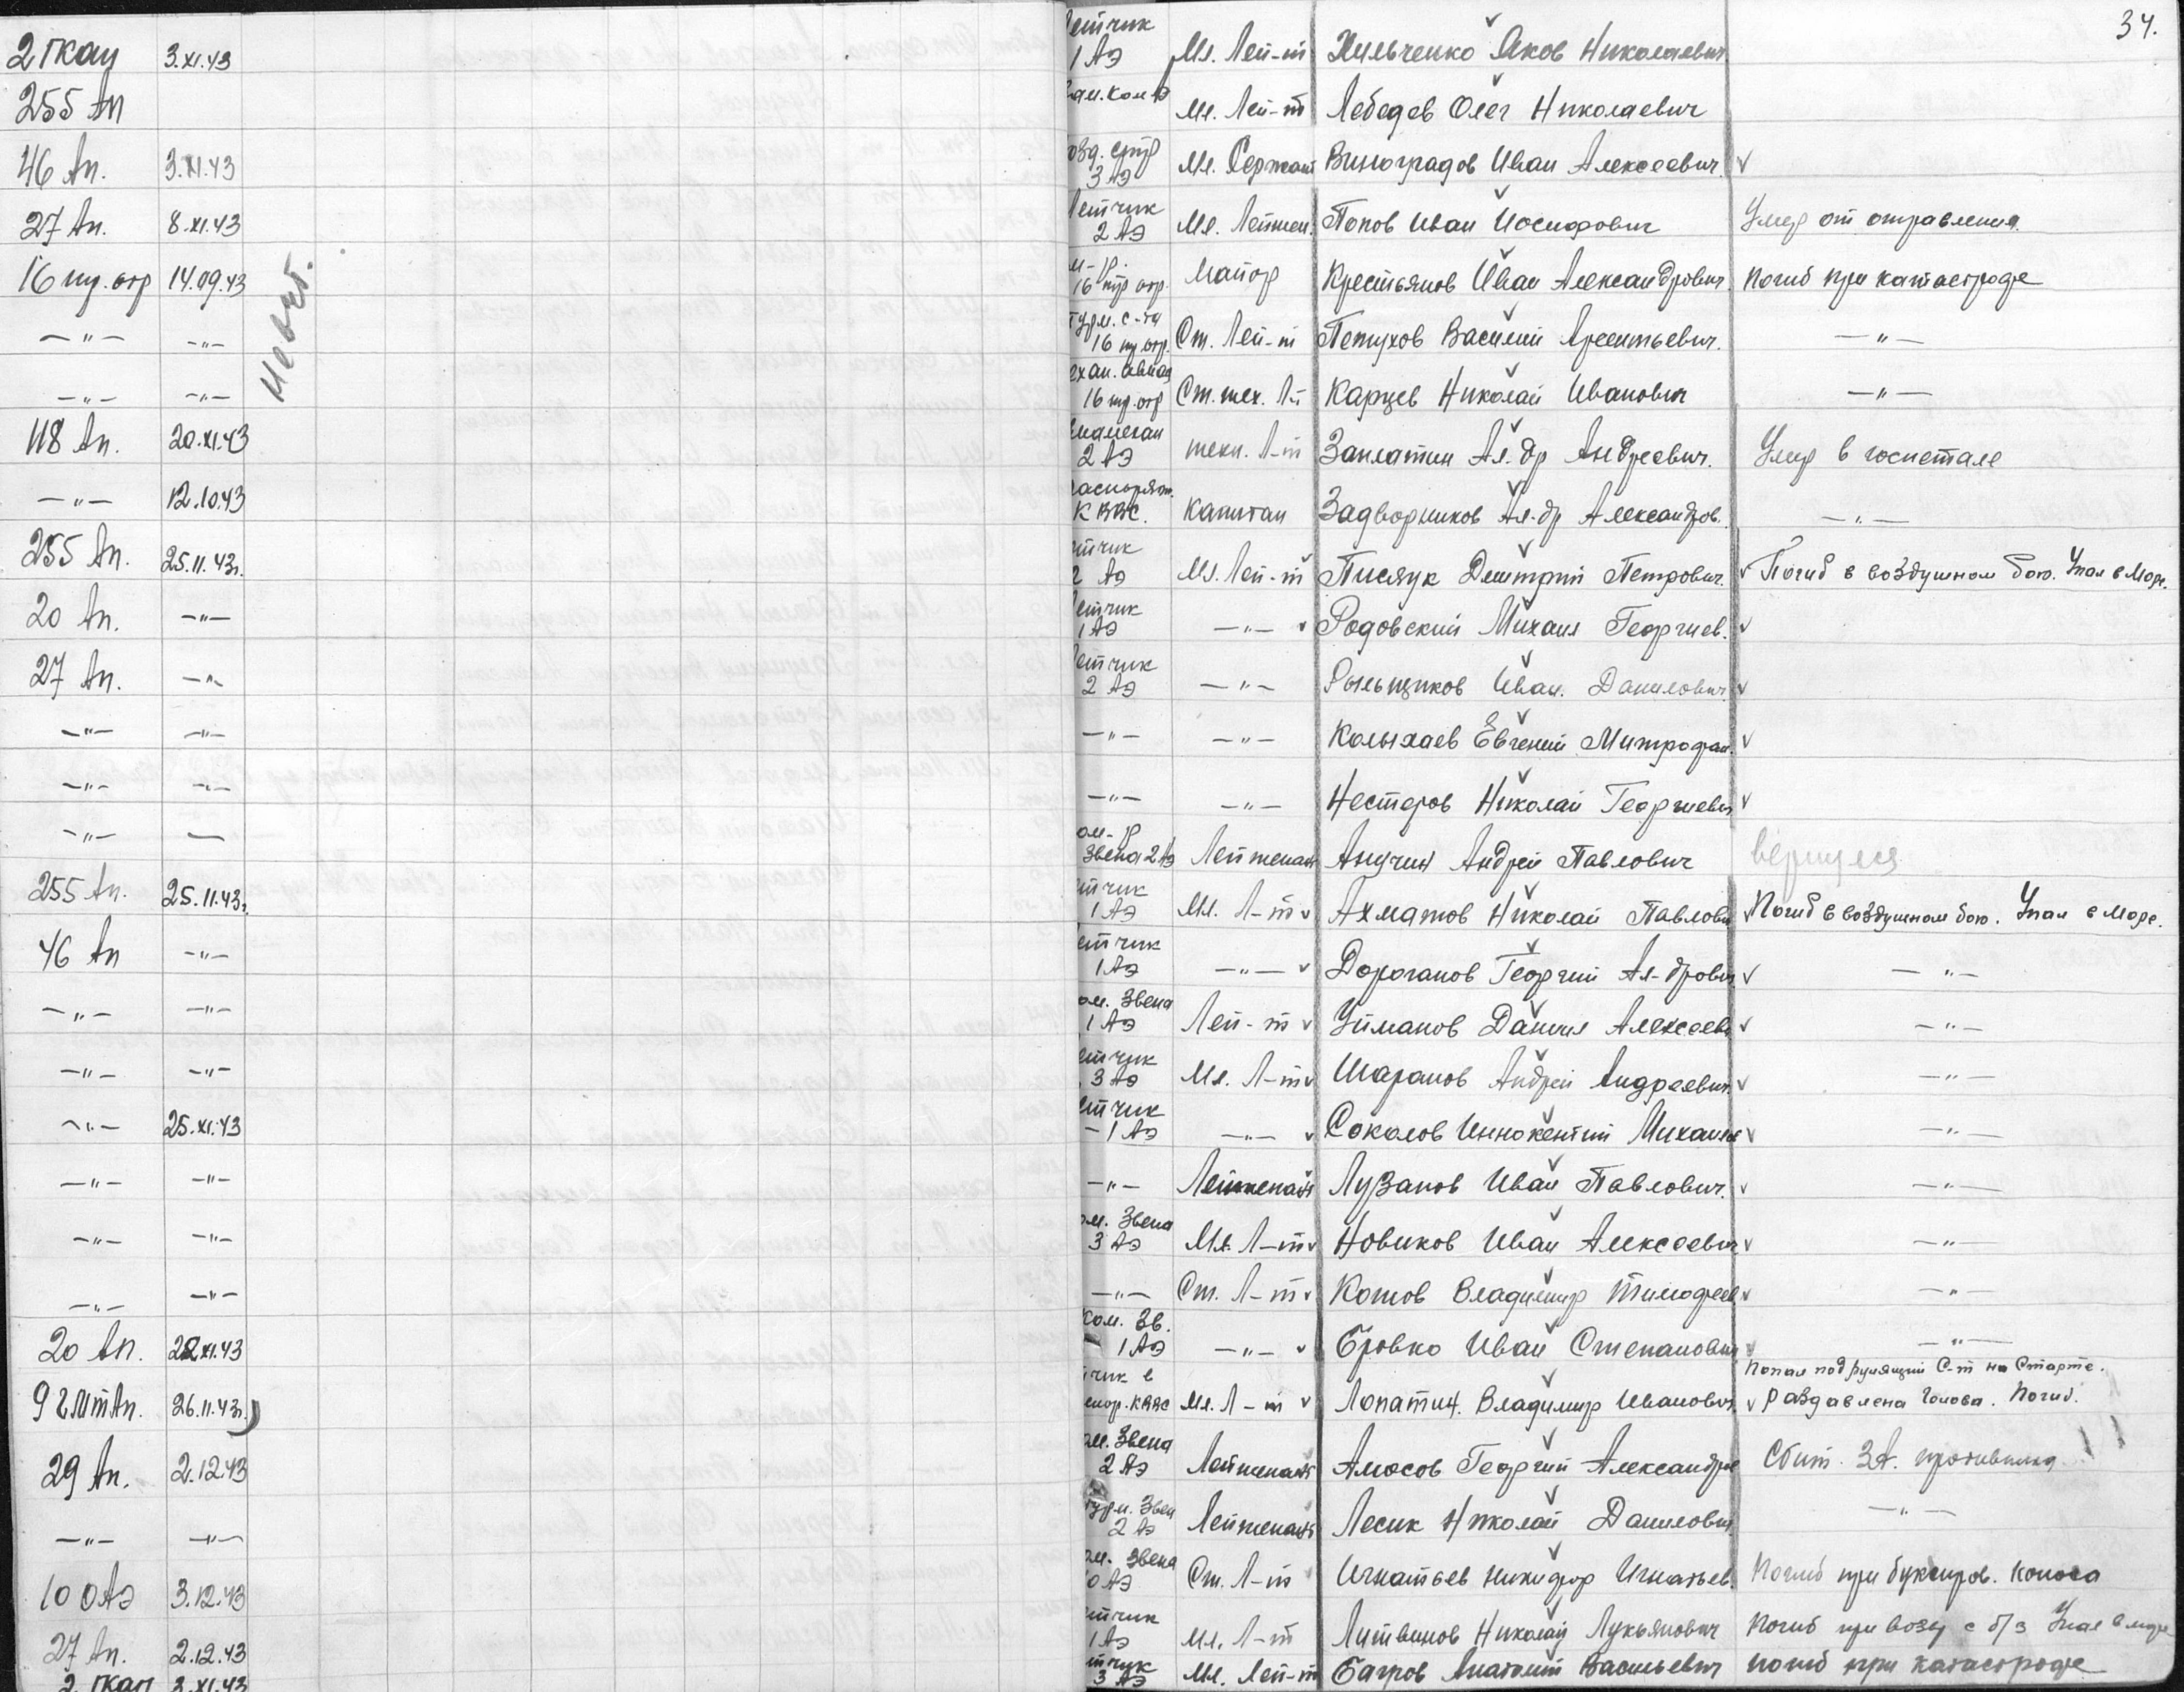 34.
2 гкап 3.XI.43
255 Ап
46 Ап. 3.XI.43
27 Ап. 8.XI.43
16 пу. отр 14.09.43
—"— —"—
—"— —"—
118 Ап. 20.XI.43
—"— 12.10.43
255 Ап. 25.11.43г.
20 Ап. —"—
27 Ап. —"—
—"— —"—
—"— —"—
—"— —
255 Ап. 25.11.43г.
46 Ап —"—
—"— —"—
—"— —"—
—"— 25.XI.43
—"— —"—
—"— —"—
—"— —"—
20 Ап. 22.XI.43
9 гШтАп. 26.11.43г.
29 Ап. 2.12.43
—"— —"—
10 ОАЭ 3.12.43
27 Ап. 2.12.43
2 гкап 3.XI.43
етчик
1 АЭ Мл. Лей-т Хильченко Яков Николаевич
ам. ком АЭ Мл. Лей-т Лебедев Олег Николаевич
озд. стр
3 АЭ Мл. Сержант Виноградов Иван Алексеевич.
Летчик
2 АЭ Мл. Лейтен. Попов Иван Иосифович Умер от отравления.
м-р.
16 пу отр. Майор Крестьянов Иван Александрович Погиб при катастрофе
турм. с-та
16 пу. отр. Ст. Лей-т Петухов Василий Арсентьевич. —"—
ехан. авиац
16 пу. отр Ст. тех. Л-т Карцев Николай Иванович —"—
2 АЭ техн. Л-т Заплатин Ал-др Андреевич. Умер в госпетале
распоряж.
К ВВС. Капитан Задворников Ал-др Александров. —"—
етчик
2 АЭ Мл. Лей-т Писяук Дмитрий Петрович. Погиб в воздушном бою. Упал в Море.
Летчик
1 АЭ —"— Родовский Михаил Георгиев.
Летчик
2 АЭ —"— Рыльщиков Иван. Данилович
—"— —"— Колыхаев Евгений Митрофан.
—"— —"— Нестеров Николай Георгиевич
ом-р
Звена 2 АЭ Лейтенант Анучин Андрей Павлович вернулся
етчик
1 АЭ Мл. Л-т Ахматов Николай Павлови Погиб в воздушном бою. Упал в Море.
етчик
1 АЭ —"— Дороганов Георгий Ал-дрович —"—
ом. Звена
1 АЭ Лей-т Уйманов Даниил Алексеев —"—
етчик
3 АЭ Мл. Л-т Шарапов Андрей Андреевич. —"—
етчик
1 АЭ —"— Соколов Иннокентий Михайл —"—
—"— Лейтенант Лузанов Иван Павлович. —"—
ом. Звена
3 АЭ Мл. Л-т Новиков Иван Алексеевич —"—
—"— Ст. Л-т Котов Владимир Тимофеев —"—
ком. Зв.
1 АЭ —"— Бровко Иван Степанович —"—
Попал под рулящий С-т на Старте.
Мл. Л-т Лопатин. Владимир Иванович. Раздавлена Голова. Погиб.
ам. Звена
2 АЭ Лейтенант Амосов Георгий Александров Сбит. ЗА. противника
турм. Звен
2 АЭ Лейтенант Лесик Николай Данилович —"—
ам. звена
10 АЭ Ст. Л-т Игнатьев Никифор Игнатьев. Погиб при буксиров. конуса
етчик
1 АЭ Мл. Л-т Литвинов Николай Лукьянович Погиб при возв с б/з Упал в море
етчик
3 АЭ Мл. Лей-т Багров Анатолий Васильевич погиб при катастрофе